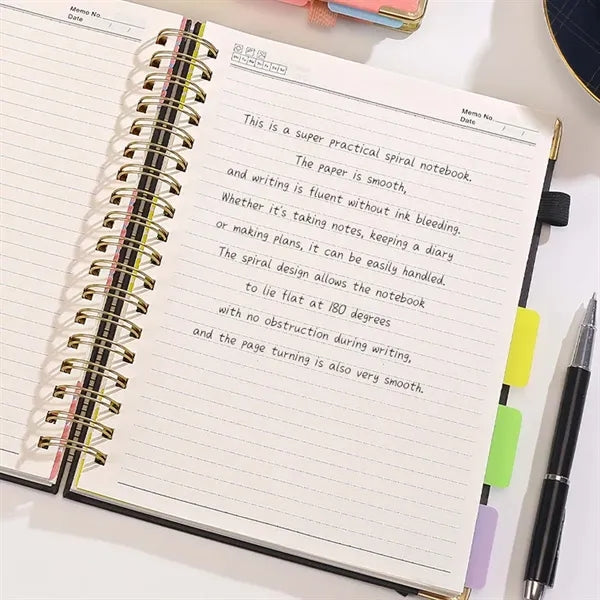 Memo No.
Date / /
Mo Tu We Th Fr Sa Su
Memo No.
Date / /
This is a super practical spiral notebook.
The paper is smooth,
and writing is fluent without ink bleeding.
Whether it's taking notes, keeping a diary
or making plans, it can be easily handled.
The spiral design allows the notebook
to lie flat at 180 degrees
with no obstruction during writing,
and the page turning is also very smooth.